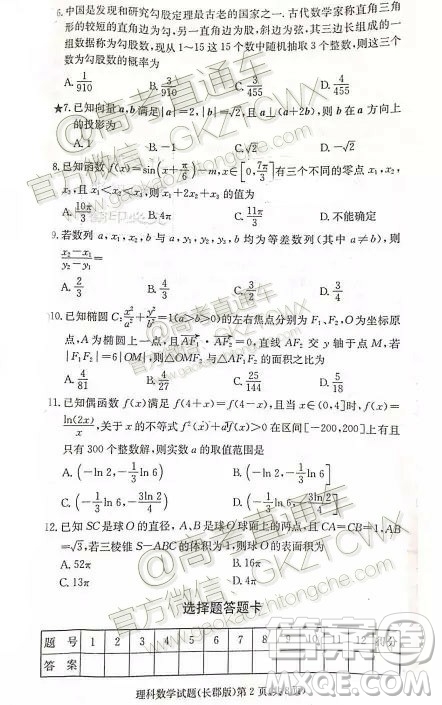 6.中国是发现和研究勾股定理最古老的国家之一.古代数学家称直角三角
形的较短的直角边为勾、另一直角边为股、斜边为弦,其三边长组成的一
组数据称为勾股数,现从1~15这15个数中随机抽取3个整数,则这三个
数为勾股数的概率为
A. 1/910 B. 3/910 C. 3/455 D. 4/455
★7.已知向量a,b满足|a|=2,|b|=√2,且a⊥(a+2b),则b在a方向上
的投影为
A.1 B.-1 C.√2 D.-√2
8.已知函数f(x)=sin(x+π/6)-m,x∈[0,7π/3]有三个不同的零点x₁,x₂,
x₃,且x₁<x₂<x₃,则x₁+2x₂+x₃的值为
A. 10π/3 B.4π C. 11π/3 D.不能确定
9.若数列a,x₁,x₂,b与a,y₁,y₂,y₃,b均为等差数列(其中a≠b),则
(x₂-x₁)/(y₂-y₁)=
A. 2/3 B. 4/3 C. D. 3/4
10.已知椭圆C:x²/a²+y²/b²=1(a>b>0)的左右焦点分别为F₁、F₂,O为坐标原
点,A为椭圆上一点,且AF₁·AF₂=0,直线AF₂交y轴于点M,若
|F₁F₂|=6|OM|,则△OMF₂与△AF₁F₂的面积之比为
A. 4/81 B. 4/27 C. 25/144 D. 5/18
11.已知偶函数f(x)满足f(4+x)=f(4-x),且当x∈(0,4]时,f(x)=
ln(2x)/x,关于x的不等式f²(x)+af(x)>0在区间[-200,200]上有且
只有300个整数解,则实数a的取值范围是
A.(-ln 2,-1/3 ln 6) B.(-ln 2,-1/3 ln 6]
C.(-1/3 ln 6,-3ln 2/4) D.(-1/3 ln 6,-3ln 2/4]
12.已知SC是球O的直径,A,B是球O球面上的两点,且CA=CB=1,AB
=√3,若三棱锥S—ABC的体积为1,则球O的表面积为
A.52π B. C.13π D.4π
选择题答题卡
题 号 1 2 3 4 5 6 7 8 9 10 11 12 得分
答 案
理科数学试题(长郡版)第 2 页
@高考直通车
官方微信:GKZTCWX
www.gaokaozhitongche.com